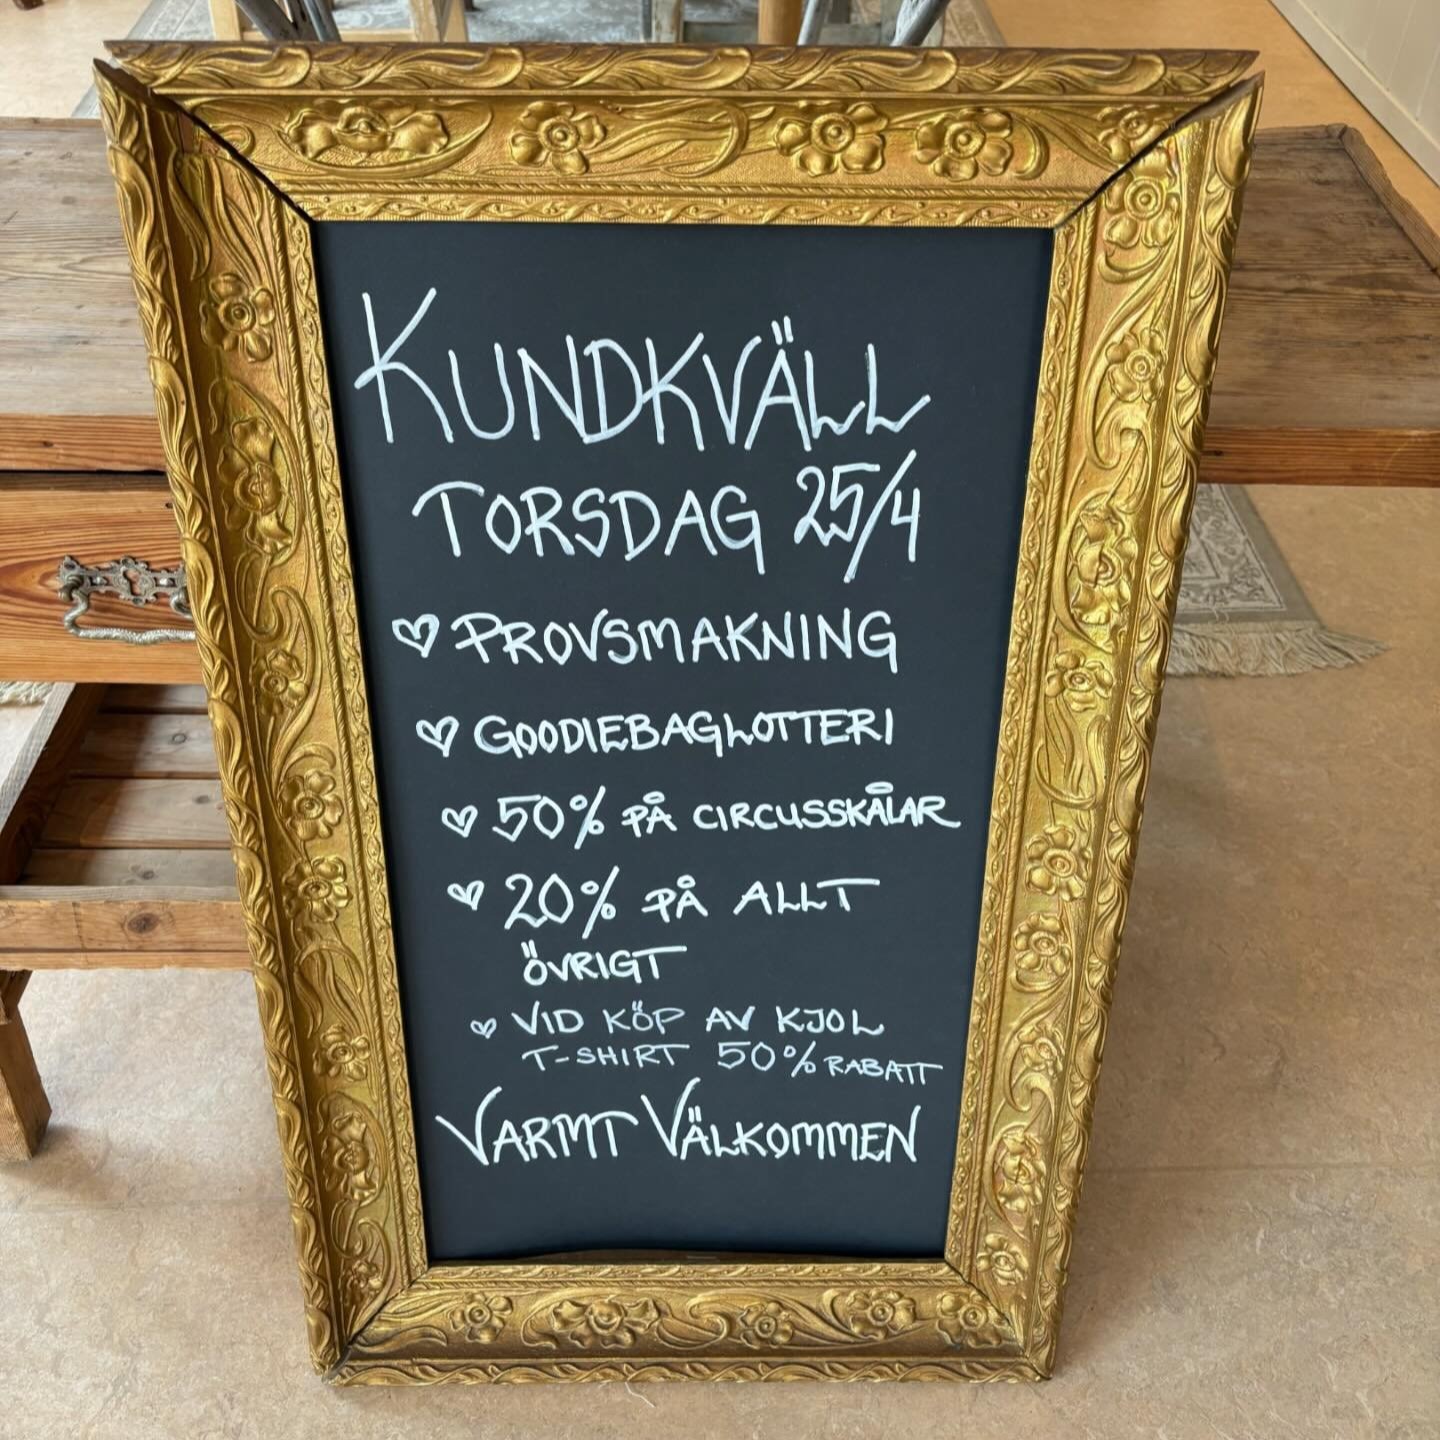 KUNDKVÄLL
TORSDAG 25/4
♡ PROVSMAKNING
♡ GOODIEBAGLOTTERI
♡ 50% PÅ CIRCUSSKÅLAR
♡ 20% PÅ ALLT
ÖVRIGT
♡ VID KÖP AV KJOL
T-SHIRT 50% RABATT
VARMT VÄLKOMMEN